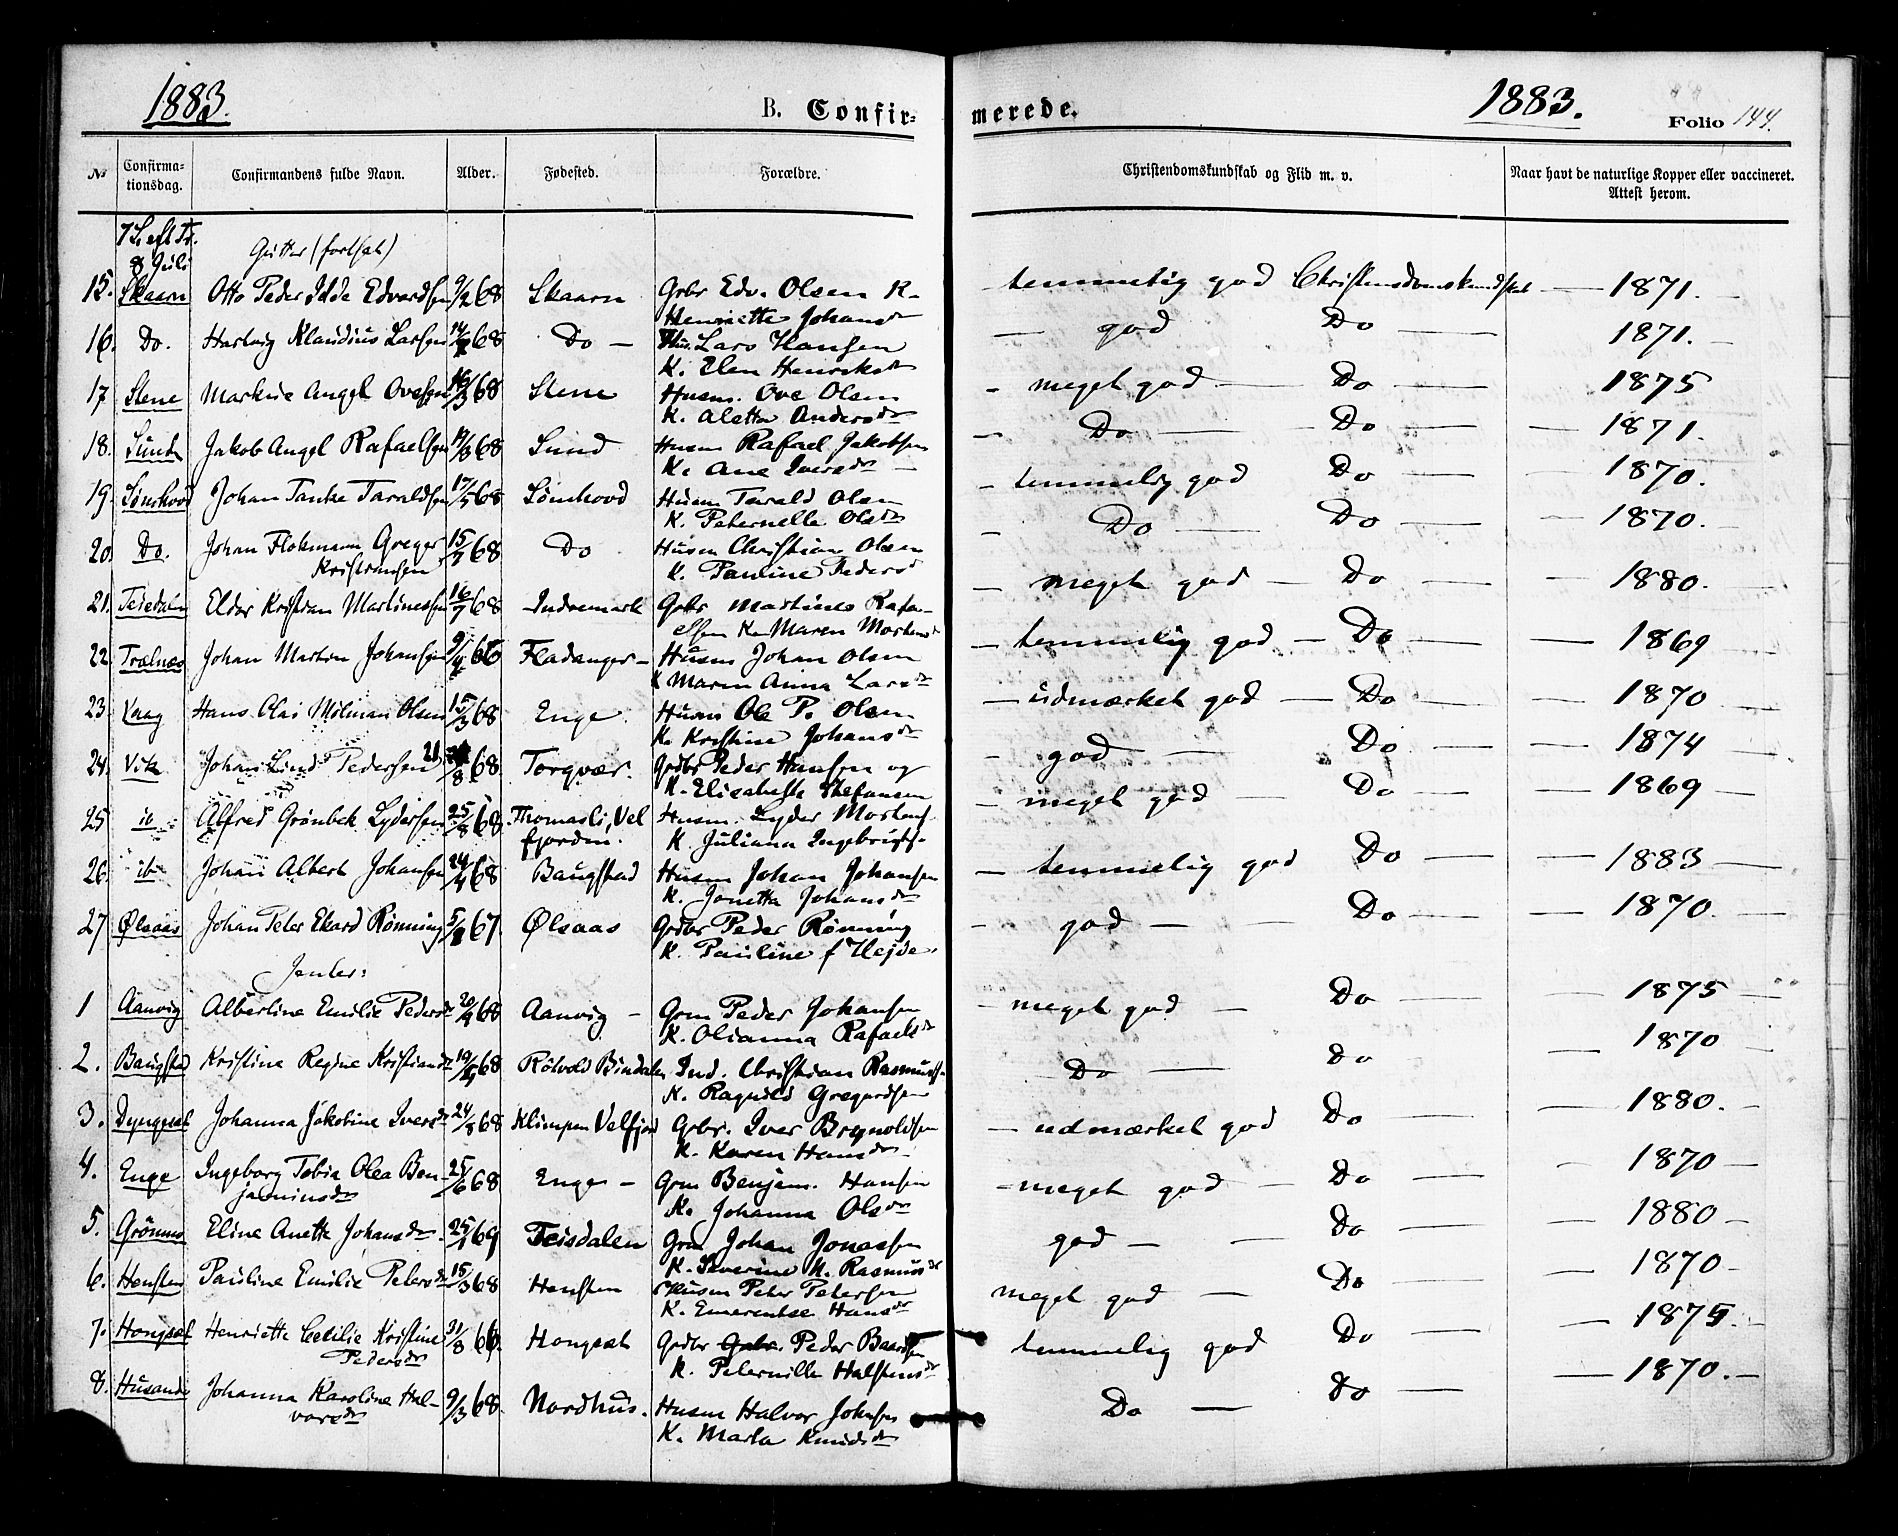 1883. B. Confir- merede. 1883. Folio 144.
№ Confirma-tionsdag. Confirmandens fulde Navn. Alder. Fødested. Forældre. Christendomskundskab og Flid m. v. Naar havt de naturlige Kopper eller vaccineret. Attest herom.
7 S. eft Tr.
8 Juli Gutter (fortsat)
15. Skaarn Otto Peder Edvardsen 9/2 68 Skaarn Grbr Edv. Olsen K. - temmelig god Christendomskundskab — 1871. -
Henriette Johansdr
16. Do. Hartvig Klaudius Larsen 68 Do — Hus. Lars Hansen — god Do — 1871. -
K. Elen Henriksdr
17 Stene Markus Angel Ovesen 68 Stene Husm. Ove Olsen - meget god — Do — 1875
K. Aletta Andersdr
18. Sund Jakob Angel Rafaelsen 68 Sund Husm Rafael Jakobsen - Do — Do — 1871.
K. Ane Iversdr
19. Sømhovd Johan Tanke Taraldsen 17/5 68 Sømhovd Husm Tarald Olsen - temmelig god Do — 1870.
K. Peternelle Olsdr
20. Do. Johan Flokmann Greger 15/7 68 Do Husm Christian Olsen - Do — Do — 1870. -
Kristiansen K. Pauline Pedersd
21. Teisdalen Eldor Kristian Martinussen 16/7 68 Indremark Grbr Martinus Rafa- - meget god — Do — 1880. -
elsen K. Maren Mortensdr
22 Trælnæs Johan Martin Johansen Fladanger - Husm Johan Olsen - temmelig god — Do — 1869
K Maren Anna Larsdr
23. Vaag Hans Olai Milman Olsen 15/3 68 Enge Husm Ole P. Olsen - udmærket god — Do — 1870
K. Kristine Johansdr
24. Vik Johan Lind Pedersen 21/8 68 Torgvær. Grdbr Peder Hansen og - god — Do — 1874
K. Elisabeth Stefansen
25 ib Alfred Grønbek Lydersen 25/8 68. Thomasli, Vel Husm. Lyder Mortens. - meget god — Do — 1869 —
fjorden. K. Juliana Ingebrigts.
26. ib Johan Albert Johansen 24/4 68 Baugstad Husm Johan Johansen - temmelig god Do — 1883 —
K. Jonetta Johansdr
27 Ølsaas Johan Peter Ekard Rønning 67. Ølsaas Grdbr Peder Rønning - god — Do — 1870. —
K. Pauline f Hejde.
Jenter:
1 Aanvig Albertine Emilie Pedersdr 68 Aanvig — Grm Peder Johansen - meget god — Do — 1875 —
K. Olianna Rafaelsdr
2. Baugstad Kristine Regine Kristiansdr 68 Røtvold Bindalen Ind. Christian Rasmuss. - Do — Do — 1870 —
K. Ragnild Gregardsen
3. Dyngeset Johanna Jakobine Iversdr 24/8 68 Klimpen Velfjord Grbr. Iver Brynoldsen - udmærket god Do — 1880. -
K. Karen Hansdr
4. Enge Ingeborg Tobia Olea Ben- 25/6 68 Enge — Grm Benjam. Hansen - meget god — Do — 1870 —
jaminsdr K. Johanna Olsdr
5. Eline Anette Johansdr. 25/1 69 Teisdalen Grm Johan Jonassen god — — Do — 1880 —
K. Severine M. Rasmusdr
6. Hensten Pauline Emilie Petersdr 15/3 68 Hensten Husm Peter Petersen meget god — Do — 1870 —
K. Emerentse Hansdr
7. Hongset Henriette Cecilie Kristine 31/8 Hongset Grdbr Grbr. Peder Baardsen temmelig god Do — 1875. —
Pedersdr K. Peternille Halstensdr
8. Husands Johanna Karoline Hal- 9/3 68. Nordhus. Husm Halvor Johnsen Do — Do — 1870. —
vorsdr K. Marta Knudsdr